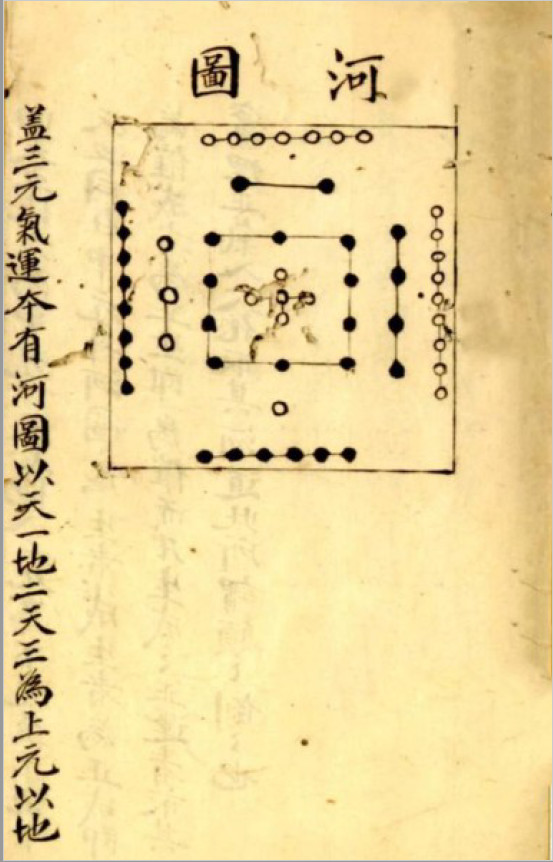 河圖
盖三元氣運夲有河圖以天一地二天三為上元以地